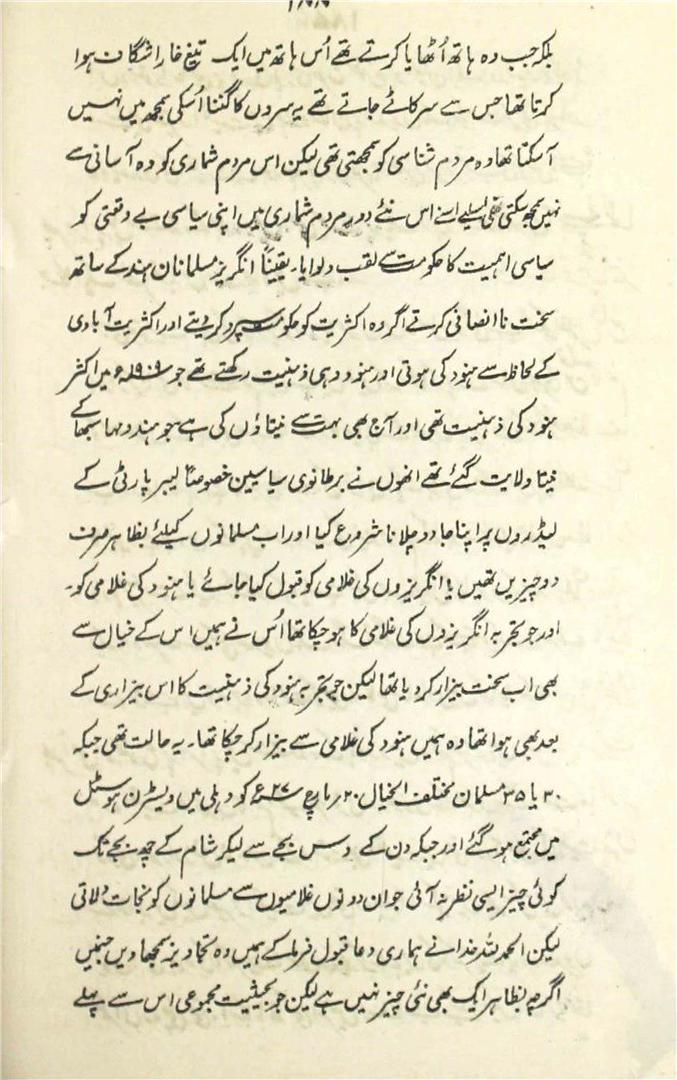 بلکہ جب وہ ہاتھ اُٹھایا کرتے تھے اُس ہاتھ میں ایک تیغ خارا شگاف ہوا
کرتا تھا جس سے سر کاٹے جاتے تھے یہ سروں کا گننا اُسکی سمجھ میں نہیں
آسکتا تھا وہ مردم شناسی کو سمجھتی تھی لیکن اس مردم شماری کو وہ آسانی سے
نہیں سمجھ سکتی تھی اسلیے اسنے اس نئے دور مردم شماری میں اپنی سیاسی بے وقعتی کو
سیاسی اہمیت کا حکومت سے لقب دلوایا۔ یقیناً انگریز مسلمانان ہند کے ساتھ
سخت ناانصافی کرتے اگر وہ اکثریت کو حکومت سپرد کردیتے اور اکثریت آبادی
کے لحاظ سے ہنود کی ہوتی اور ہنود وہی ذہنیت رکھتے تھے جو ۱۹۰۹ء میں اکثر
ہنود کی ذہنیت تھی اور آج بھی بہت سے نیتاؤں کی ہے جو ہندو مہا سبھا کے
نیتا ولایت گئے تھے انھوں نے برطانوی سیاسیین خصوصاً لیبر پارٹی کے
لیڈروں پر اپنا جادو چلانا شروع کیا اور اب مسلمانوں کیلئے بظاہر صرف
دو چیزیں تھیں یا انگریزوں کی غلامی کو قبول کیا جائے یا ہنود کی غلامی کو۔
اور جو تجربہ انگریزوں کی غلامی کا ہوچکا تھا اُس نے ہمیں اس کے خیال سے
بھی اب سخت بیزار کردیا تھا لیکن جو تجربہ ہنود کی ذہنیت کا اس بیزاری کے
بعد بھی ہوا تھا وہ ہمیں ہنود کی غلامی سے بیزار کرچکا تھا۔ یہ حالت تھی جبکہ
۳۰ یا ۳۵ مسلمان مختلف الخیال ۲۰ مارچ ۲۷ء کو دہلی میں ویسٹرن ہوسٹل
میں مجتمع ہوگئے اور جبکہ دن کے دس بجے سے لیکر شام کے چھ بجے تک
کوئی چیز ایسی نظر نہ آئی جو ان دونوں غلامیوں سے مسلمانوں کو نجات دلاتی
لیکن الحمدللہ خدا نے ہماری دعا قبول فرما کے ہمیں وہ تجاویز سمجھا دیں جنمیں
اگرچہ بظاہر ایک بھی نئی چیز نہیں ہے لیکن جو بحیثیت مجموعی اس سے پہلے